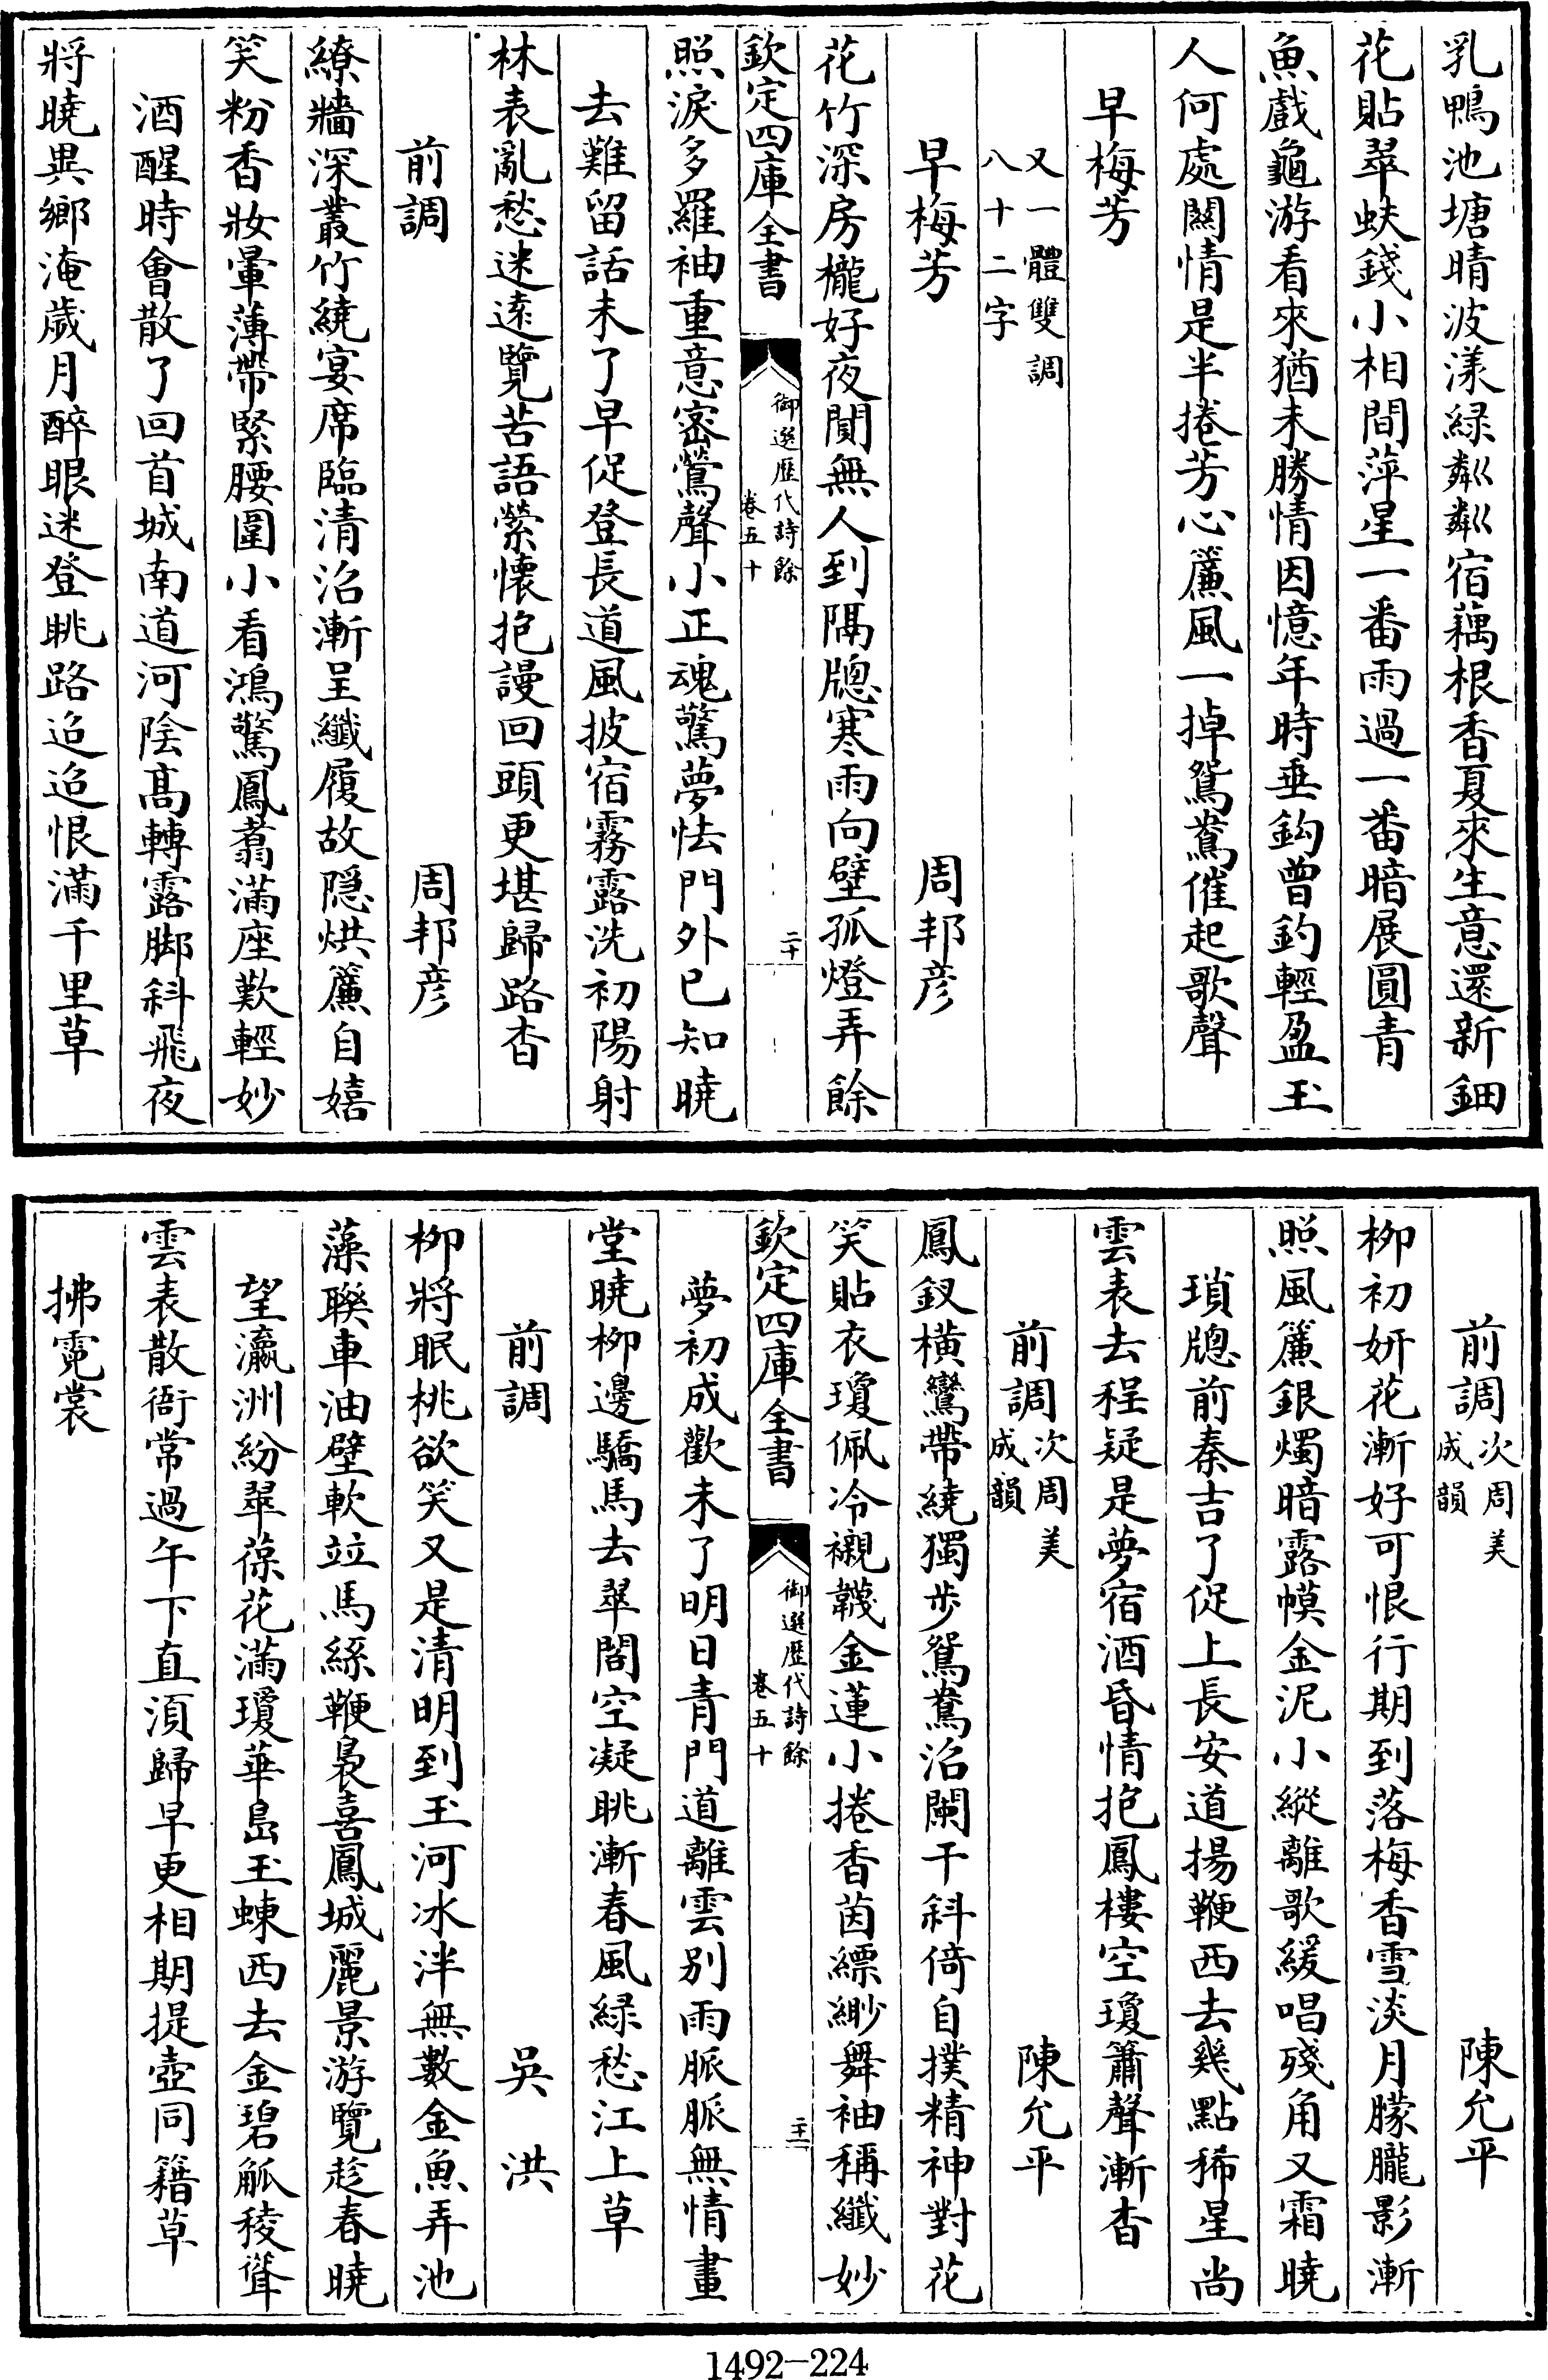 乳鴨池塘晴波漾緑粼粼宿藕根香夏來生意還新鈿
花貼翠蚨錢小相間萍星一番雨過一番暗展圓青
魚戲龜游看來猶未勝情因憶年時垂鈎曾釣輕盈玉
人何處闗情是半捲芳心簾風一掉鴛鴦催起歌聲
早梅芳
又一體雙調
八十二字
早梅芳 周邦彦
花竹深房櫳好夜闃無人到隔牕寒雨向壁孤燈弄餘
欽定四庫全書
御選歴代詩餘
卷五十
二十
照淚多羅袖重意密鶯聲小正魂驚夢怯門外已知曉
去難留話未了早促登長道風披宿霧露洗初陽射
林表亂愁迷逺覽苦語縈懐抱謾回頭更堪歸路杳
前調 周邦彦
繚牆深叢竹繞宴席臨清沼漸呈纖履故隠烘簾自嬉
笑粉香妝暈薄帶緊腰圍小看鴻驚鳳翥滿座歎輕妙
酒醒時會散了回首城南道河陰髙轉露脚斜飛夜
將曉異鄉淹歲月醉眼迷登眺路迢迢恨滿千里草
前調 次周美
成韻 陳允平
栁初妍花漸好可恨行期到落梅香雪淡月朦朧影漸
照風簾銀燭暗露幙金泥小縱離歌緩唱殘角又霜曉
瑣牕前秦吉了促上長安道揚鞭西去幾點稀星尚
雲表去程疑是夢宿酒昏情抱鳳樓空瓊簫聲漸杳
前調 次周美
成韻 陳允平
鳳釵横鸞帶繞獨歩鴛鴦沼闌干斜倚自撲精神對花
笑貼衣瓊佩冷襯韈金蓮小捲香茵縹緲舞袖稱纖妙
欽定四庫全書
御選歴代詩餘
卷五十
二十一
夢初成歡未了明日青門道離雲别雨脈脈無情畫
堂曉栁邊驕馬去翠閣空凝眺漸春風緑愁江上草
前調 吳洪
栁將眠桃欲笑又是清明到玉河冰泮無數金魚弄池
藻聨車油壁軟竝馬絲鞭裊喜鳳城麗景游覽趁春曉
望瀛洲紛翠葆花滿瓊華島玉蝀西去金碧觚稜聳
雲表散衙常過午下直須歸早更相期提壺同籍草
拂霓裳
1492—224